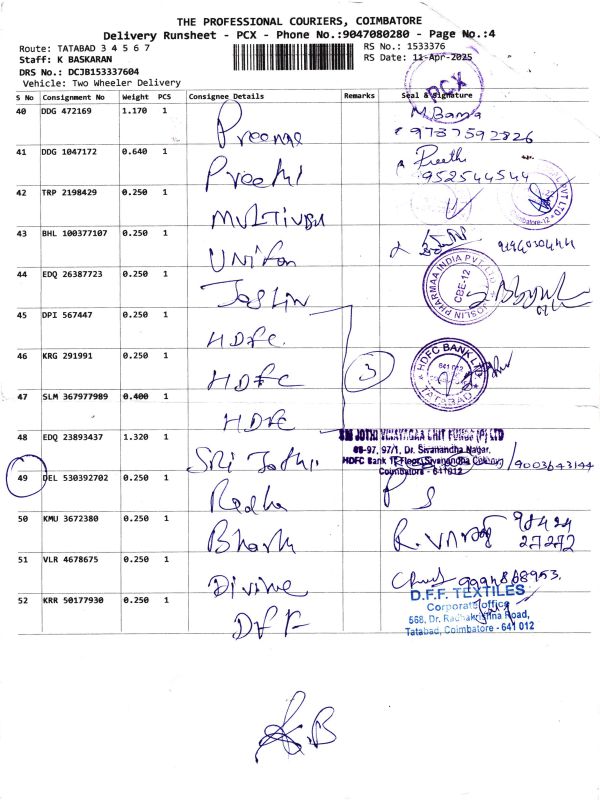 THE PROFESSIONAL COURIERS, COIMBATORE
Delivery Runsheet - PCX - Phone No.:9047080280 - Page No.:4
Route: TATABAD 3 4 5 6 7
RS No.: 1533376
Staff: K BASKARAN
RS Date: 11-Apr-2025
DRS No.: DCJB153337604
Vehicle: Two Wheeler Delivery
PCX
S No Consignment No Weight PCS Consignee Details Remarks Seal & Signature
40 DDG 472169 1.170 1
9737592826
41 DDG 1047172 0.640 1 Preethi Preethi
952544544
42 TRP 2198429 0.250 1
43 BHL 100377107 0.250 1
44 EDQ 26387723 0.250 1 Joslin JOSLIN PHARMAA INDIA PVT. LTD. CBE-12
45 DPI 567447 0.250 1 HDFC
46 KRG 291991 0.250 1 HDFC 3 HDFC BANK LTD 641 012 TATABAD
47 SLM 367977989 0.400 1 HDFC
48 EDQ 23893437 1.320 1 Sri Jothi
SRI JOTHI VINAYAGAA CHIT FUNDS (P) LTD
96-97, 97/1, Dr. Sivanandha Nagar,
HDFC Bank 1st Floor, Sivanandha Colony
Coimbatore - 641012
9003643144
49 DEL 530392702 0.250 1 Radha P S
50 KMU 3672380 0.250 1 Bharth R.
98424
27272
51 VLR 4678675 0.250 1 Divine
52 KRR 50177930 0.250 1 DFF
D.F.F. TEXTILES
Corporate office
568, Dr. Radhakrishna Road,
Tatabad, Coimbatore - 641 012
K.B